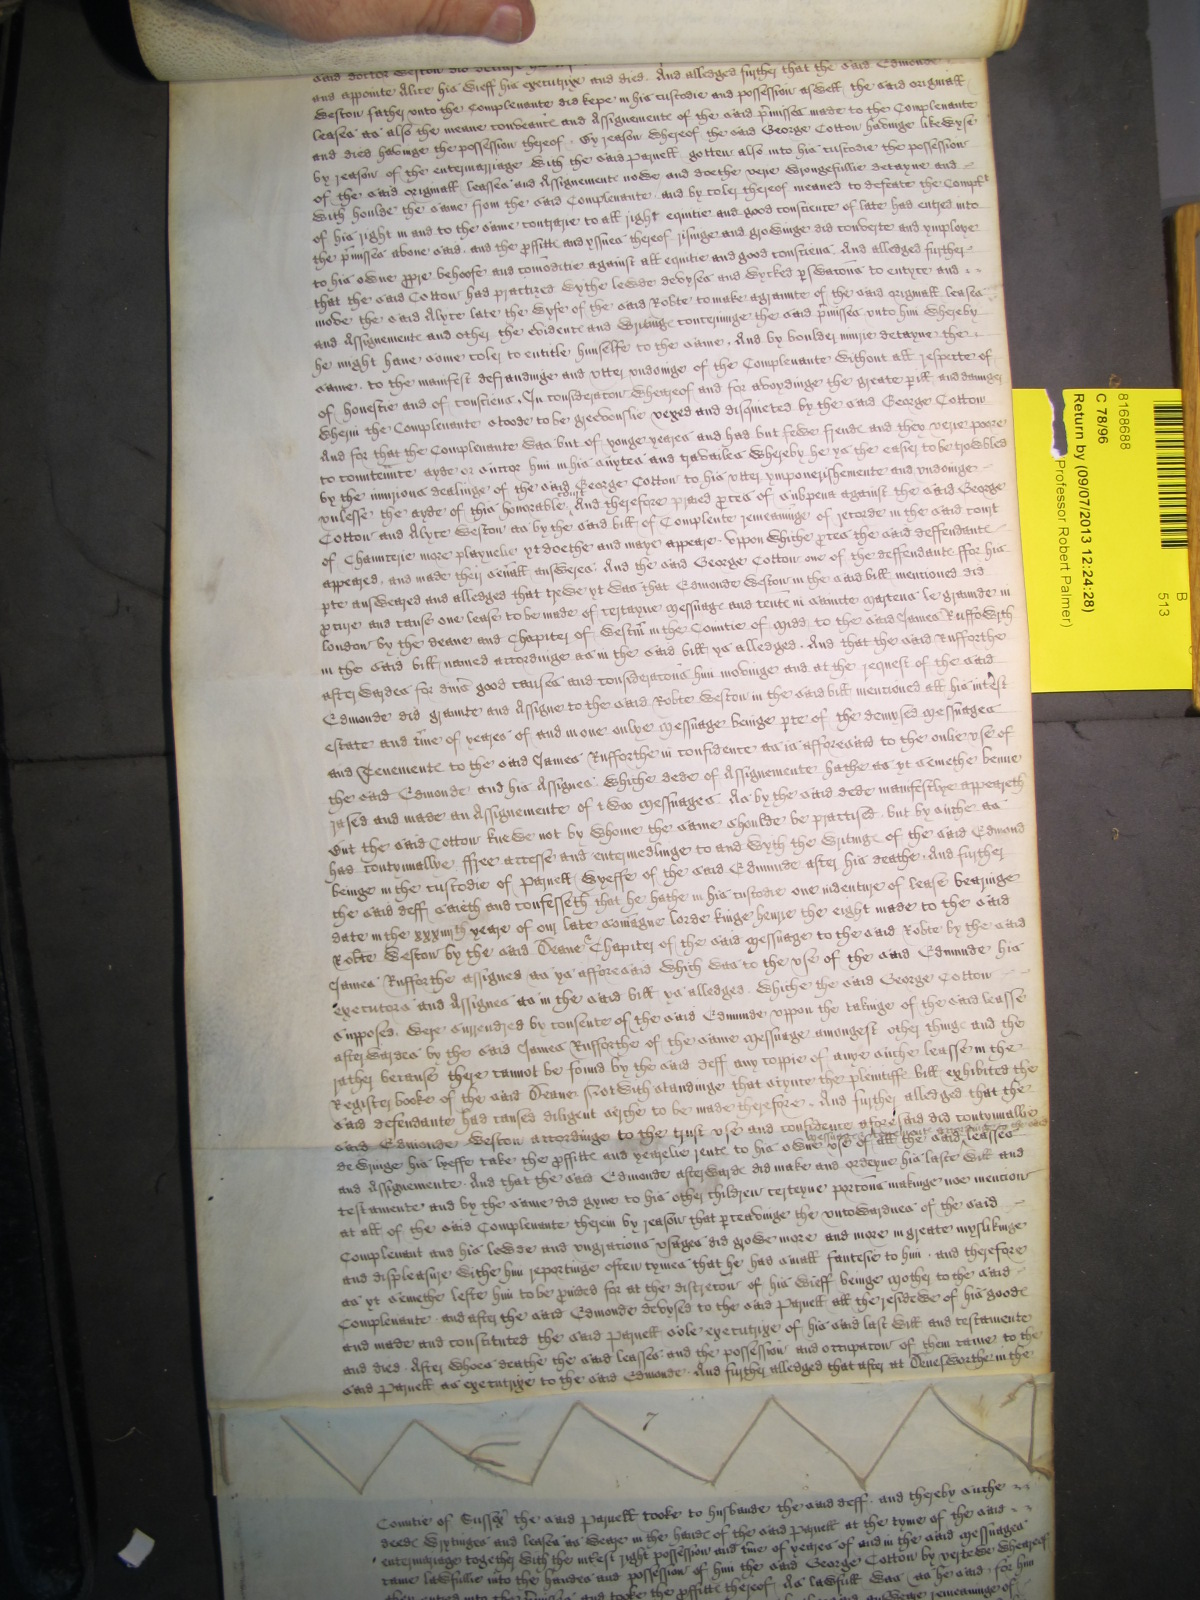 said doctor Weston did
and appointe Alice his Wieff his executrixe and died. And alledged further that the said Edmonde
Weston father unto the Complenante did kepe in his custodie and possession aswell the said originall
leases as also the meane conveance and Assignemente of the said p̄misses made to the Complenante
and died havinge the possession thereof. By reason Whereof the said George Cotton havinge likewyse
by reason of the entermarriage With the said Parnell gotten also into his custodie the possession
of the said originall leases and Assignemente nowe and doethe verie Wrongefullie detayne and
With houlde the same from the said Complenante and by coler thereof meaned to defeate the Complt
of his right in and to the same contrarie to all right equitie and good conscience of late had entred into
the p̄misses above said, and the p̄fitte and yssues thereof risinge and growinge did converte and ymploye
to his owne p̄p̄re behoofe and comoditie against all equitie and good consciens. And alledged further
that the said Cotton had practized Wythe lewde devyses and Wycked p̄swacons to entyce and
move the said Alyce late the Wyfe of the said Robte to make a graunte of the said originall leases
and Assignemente and other the evidente and Writinge concerninge the said p̄misses unto him Whereby
he might have some coler to entitle himselfe to the same, And by boulder maner detayne the
same, to the manifest defraudinge and utter undoinge of the Complenante Without all respecte of
of honestie and of consciens, In consideracon Wheareof and for avoydinge the greate p̄ill and daunger
Wherin the Complenante stoode to be greevouslie vexed and disquieted by the said George Cotton
And for that the Complenante Was but of yonge yeares and had but fewe friende and they verie poore
to ayde or succor him in his suytes and travailes Whereby he ys the easier to be trowbled
by the iniurious dealinge of the said George Cotton to his utter ympoverishemente and undoinge
unlesse the ayde of this honorable Court And therefore praied p̄ces of subpena against the said George
Cotton and Alyce Weston as by the said bill of Complente remeaninge of recorde in the said Court
of Chauncerie more playnelie yt doethe and maye appeare. Uppon Whiche p̄ces the said deffendante
appeared, and made their severall answeres. And the said George Cotton one of the deffendante ffor his
p̄te answeared and alledged that trewe yt Was that Edmonde Weston in the said bill mentioned did
p̄cure and cause one lease to be made of certayne Messuage and tente in Saincte Martens le graunde in
London by the deane and Chapiter of Westm̄ in the Countie of Midd to the said James Rufforth
in the said bill named accordinge as in the said bill ys alledged. And that the said Rufforthe
afterwardes for divs good causes and consideracons him movinge and at the request of the said
Edmonde did graunte and Assigne to the said Robte Weston in the said bill mentioned all his intest
estate and tme of yeares of and in one onlye Messuage beinge p̄te of the demysed Messuages
and Tenemente to the said James Rufforthe in confidence as is afforesaid to the onlie use of
the said Edmonde and his Assignes. Whiche dede of Assignemente hathe as yt semethe benne
rased and made an Assignemente of twoo Messuages. As by the said dede manifestlye appeareth
But the said Cotton knewe not by Whome the same shoulde be practised, but by suche as
had contynuallye ffree accesse and entermedlinge to and Wyth the Writinge of the said Edmond
beinge in the custodie of Parnell Wyeffe of the said Edmunde after his deathe. And further
the said deff saieth and confesseth that he hathe in his custodie one indenture of lease bearinge
date in the xxxiiijth yeare of our late soveraigne lorde kinge henrie the eight made to the said
Robte Weston by the said Deane & Chapiter of the said Messuage to the said Robte by the said
James Rufforthe assigned as ys afforesaid Which Was to the use of the said Edmunde his
executors and Assignes as in the said bill ys alledged. Whiche the said George Cotton
supposed, Were surrendred by consente of the said Edmunde uppon the takinge of the said leasse
afterwardes by the said James Rufforthe of the same Messuage amongest other thinge and the
rather because there cannot be found by the said deff any coppie of anye suche leasse in the
Register booke of the said Deane Notwithstandinge that sythence the plentiffe bill exhibited the
said defendante had caused diligent serche to be made therefore. And further alledged that the
said Edmonde Weston accordinge to the trust use and confidence aforesaid did contynuallie
dewringe his lyeffe take the p̄fitte and yearelie rente to his owne use of all the said leasses
and Assignemente. And that the said Edmonde afterwarde did make and ordeyne his laste Will and
testamente and by the same did gyve to his other children certeyne porcons makinge noe mention
at all of the said Complenante therein by reason that p̄ceavinge the untowardnes of the said
Complenant and his lewde and ungratious usages did growe more and more in greate myslikinge
and displeasure Withe him reportinge often tymes that he had small fantesie to him, and therefore
as yt semethe lefte him to be p̄vided for at the discrecon of his Wieff beinge Mother to the said
Complenante, and after the said Edmonde devysed to the said Parnell all the residewe of his goode
and made and constituted the said Parnell sole executrixe of his said last Will and testamente
and died. After Whoes deathe the said leasses and the possession and occupacon of them came to the
said Parnell as executrixe to the said Edmonde. And further alledged that after at in the
7
Countie of Sussex the said Parnell tooke to husbande the said deff, and thereby suche
deede Wrytinges and leases as Weare in the hande of the said Parnell at the tyme of the said
entermariage together With the intrest right possession and tme of yeares of and in the said Messuages
came lawfullie into the handes and possession of him the said George Cotton by vertewe Wheareof
and tooke the p̄fitte thereof, As lawfull Was, as he said, for him
8168688
C 78/96
Return by (09/07/2013 12:24:28)
Professor Robert Palmer)
B
513